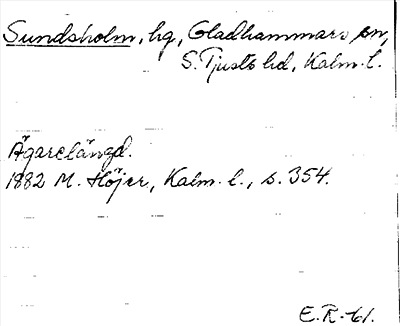 Sundsholm, hg, Gladhammars sn,
S. Tjusts hd, Kalm. l.
Ägarelängd.
1882 M. Höjer, Kalm. l., s. 354.
E.R-61.